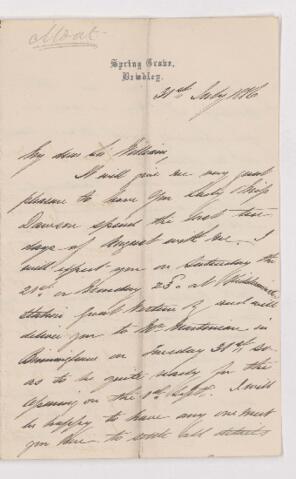 Moat
Spring Grove,
Bewdley.
31st July 1886
My dear Sir William,
It will give me very great
pleasure to have you Lady & Miss
Dawson spend the last two
days of August with me. I
will expect you on Saturday the
or Monday at
station Great Western Ry and will
deliver you to Mrs Martineau in
on Tuesday 31st so
as to be quite ready for the
opening on the 1st Septr. I will
be happy to have any one meet
you here to work all details